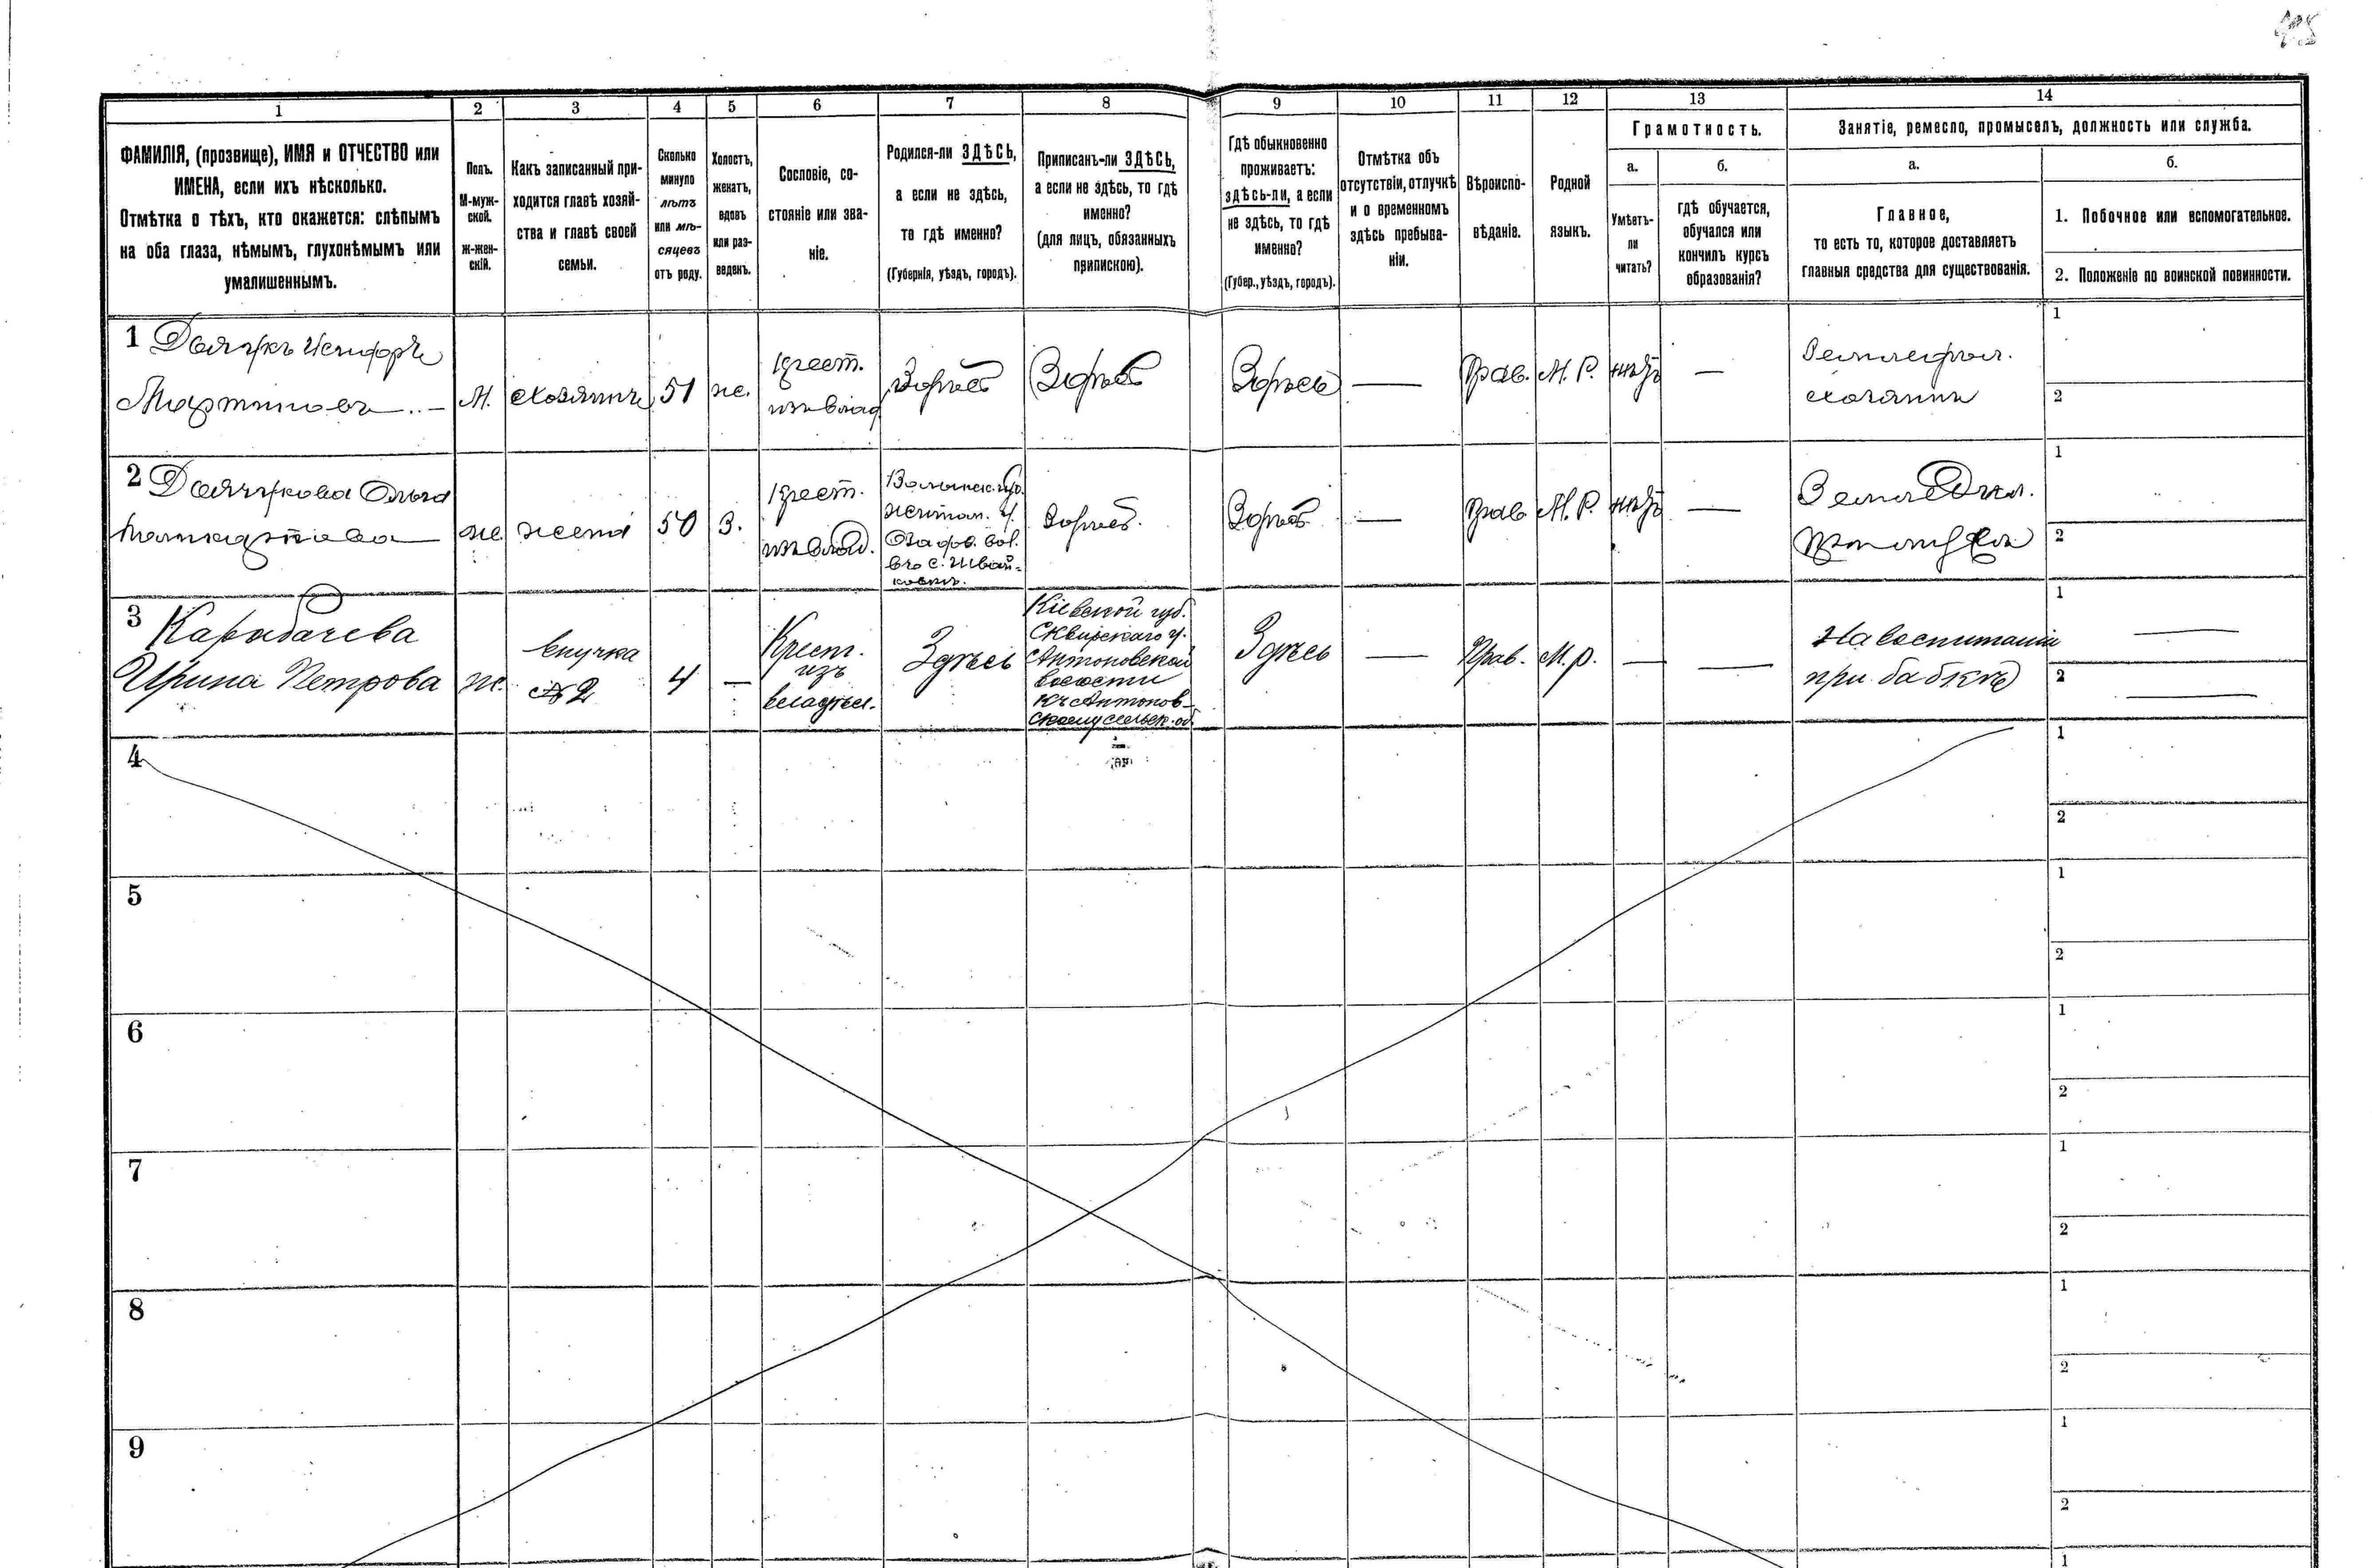 1
2
3
4
5
6
7
8
9
10
11
12
13
14
ФАМИЛІЯ, (прозвище), ИМЯ и ОТЧЕСТВО или
ИМЕНА, если ихъ нѣсколько.
Отмѣтка о тѣхъ, кто окажется: слѣпымъ
на оба глаза, нѣмымъ, глухонѣмымъ или
умалишеннымъ.
Полъ.
М-муж-
ской.
Ж-жен-
скій.
Какъ записанный при-
ходится главѣ хозяй-
ства и главѣ своей
семьи.
Сколько
минуло
лѣтъ
или мѣ-
сяцевъ
отъ роду.
Холостъ,
женатъ,
вдовъ
или раз-
веденъ.
Сословіе, со-
стояніе или зва-
ніе.
Родился-ли ЗДѢСЬ,
а если не здѣсь,
то гдѣ именно?
(Губернія, уѣздъ, городъ).
Приписанъ-ли ЗДѢСЬ,
а если не здѣсь, то гдѣ
именно?
(для лицъ, обязанныхъ
припискою).
Гдѣ обыкновенно
проживаетъ:
здѣсь-ли, а если
не здѣсь, то гдѣ
именно?
(Губер., уѣздъ, городъ).
Отмѣтка объ
отсутствіи, отлучкѣ
и о временномъ
здѣсь пребыва-
ніи.
Вѣроиспо-
вѣданіе.
Родной
языкъ.
Грамотность.
а.
Умѣетъ-
ли
читать?
б.
гдѣ обучается,
обучался или
кончилъ курсъ
образованія?
Занятіе, ремесло, промыселъ, должность или служба.
а.
Главное,
то есть то, которое доставляетъ
главныя средства для существованія.
б.
1. Побочное или вспомогательное.
2. Положеніе по воинской повинности.
1
Мартиновъ
М.
хозяинъ
51
ж.
крест.
Здѣсь
Здѣсь
Здѣсь
—
Прав.
М. Р.
нѣтъ
—
хозяинъ
1
2
2
Ольга
же.
жена
50
З.
крест.
Волынск. губ.
Житом. у.
вол.
въ с. Ивай-
ковкѣ.
Здѣсь.
Здѣсь
—
Прав.
М. Р.
нѣтъ
—
1
2
3 Карыбачева
Ирина Петрова
ж.
внучка
2
4
—
Крест.
изъ
владѣл.
Здѣсь
Кіевской губ.
Сквирскаго у.
Антоновской
волости
къ Антонов-
скому сельск. об.
Здѣсь
—
Прав.
М. р.
—
—
На воспитаніи
при бабкѣ
1
—
2
—
4
1
2
5
1
2
6
1
2
7
1
2
8
1
2
9
1
2
1